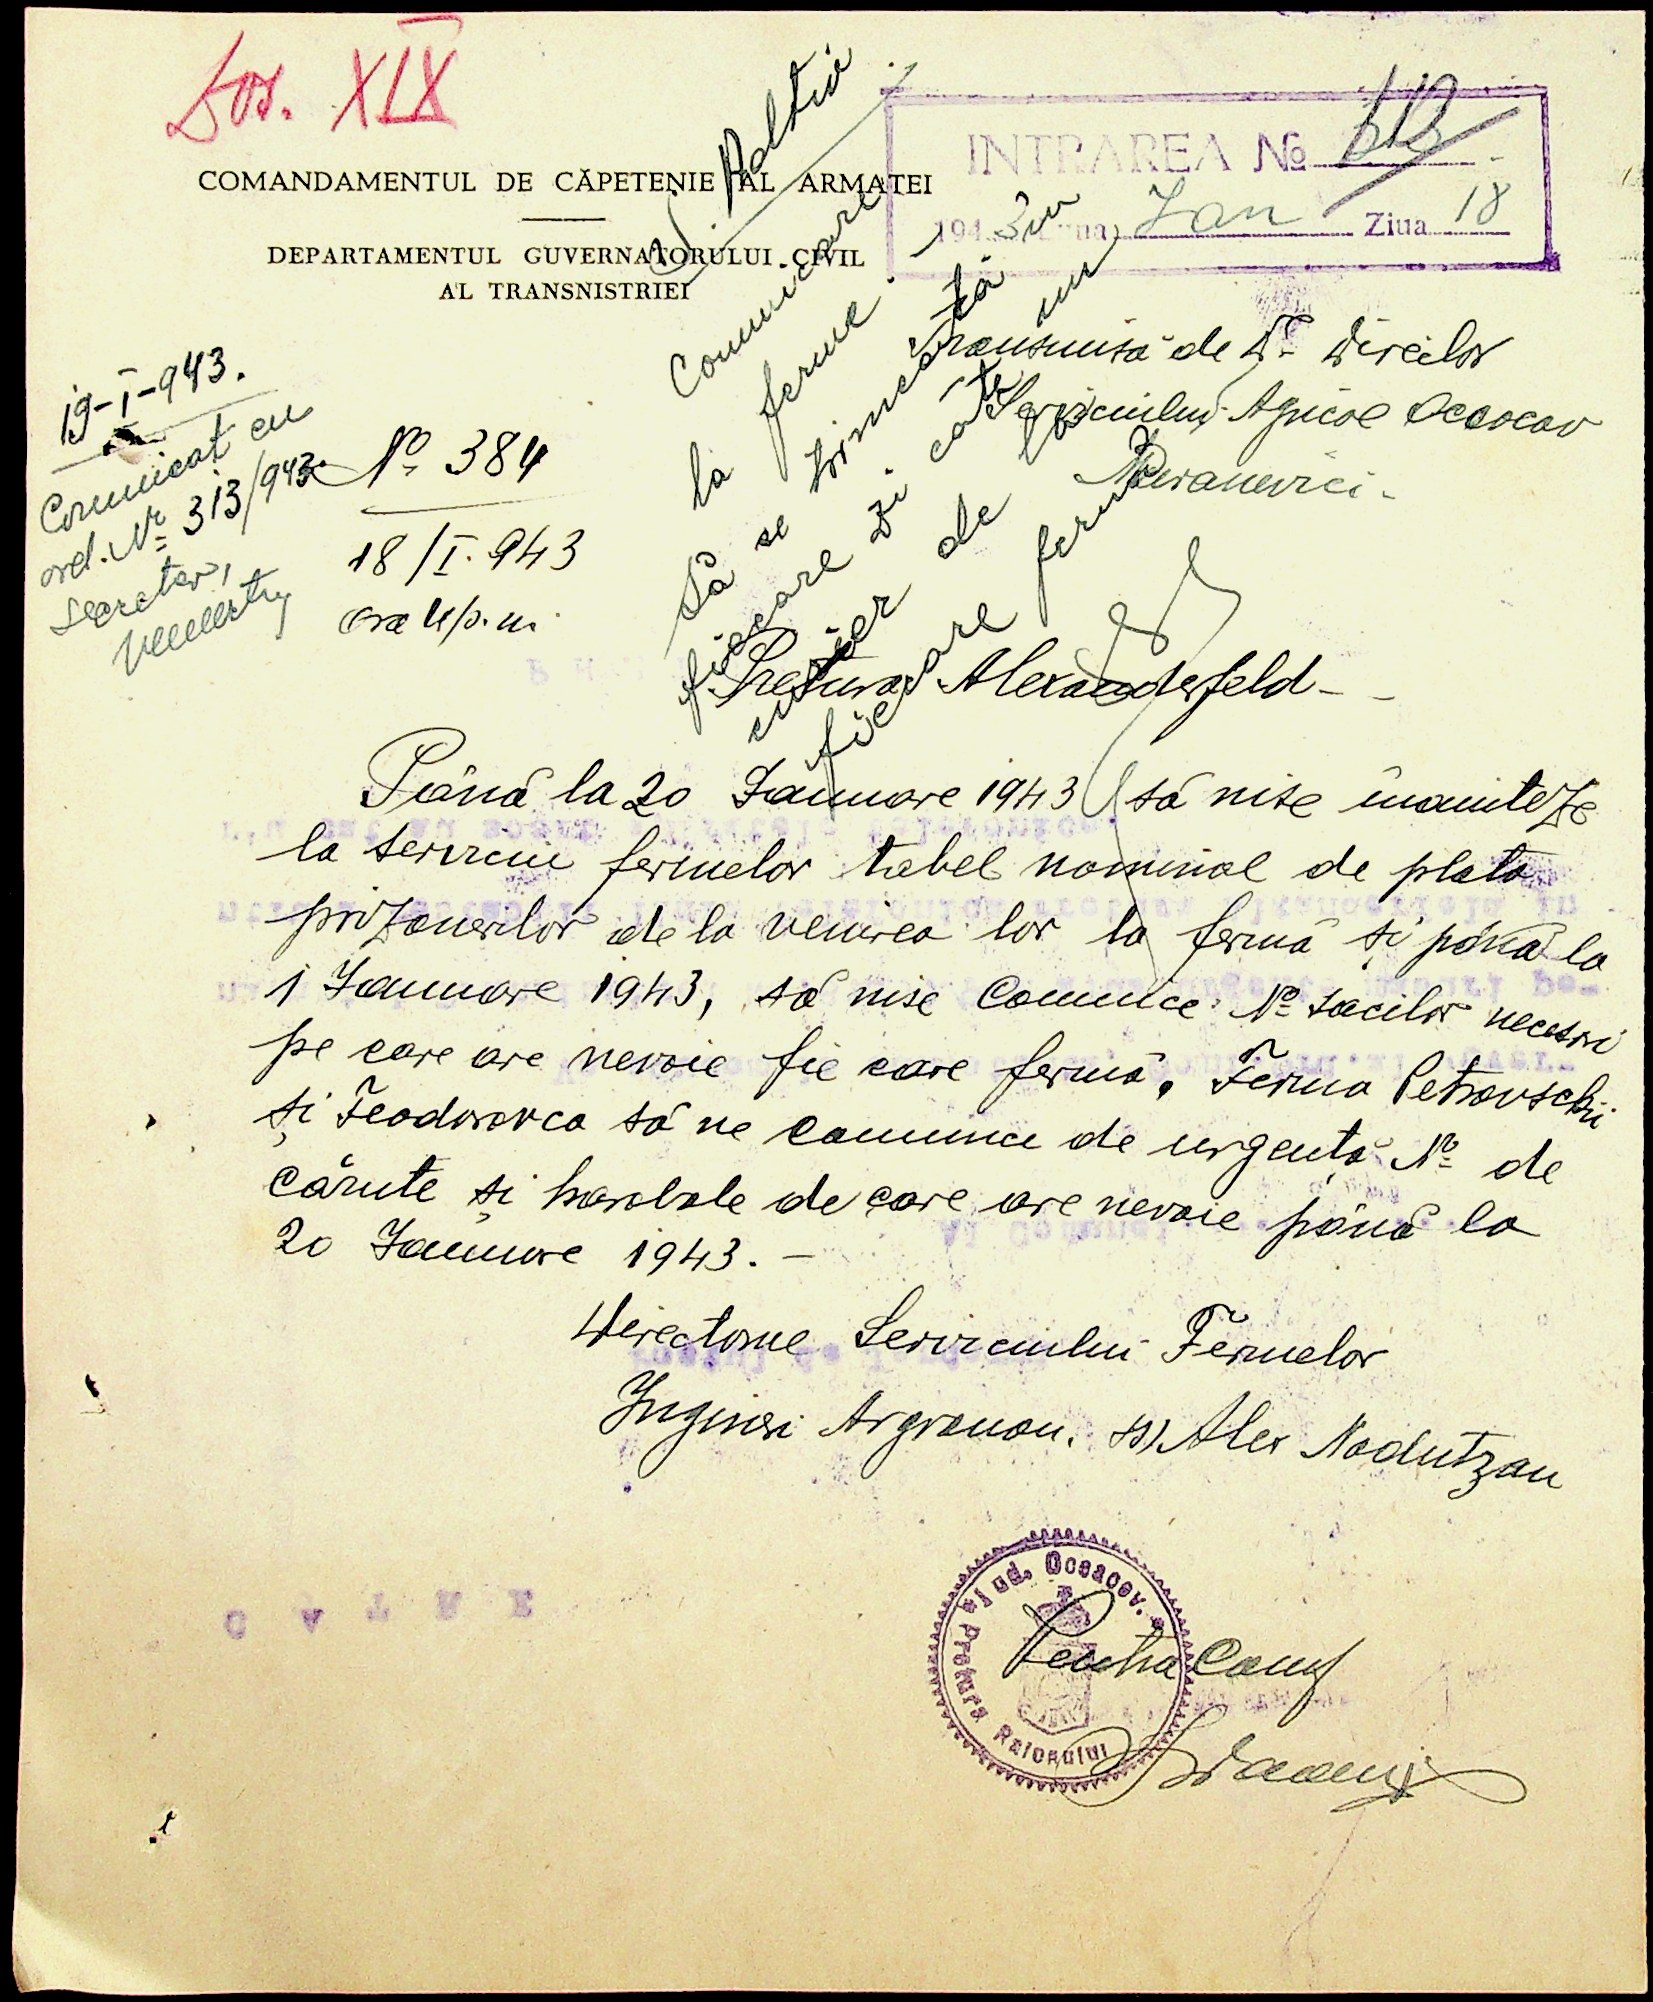 Dos. XIX
COMANDAMENTUL DE CĂPETENIE AL ARMATEI
DEPARTAMENTUL GUVERNATORULUI CIVIL
AL TRANSNISTRIEI
INTRAREA №
194 3 Luna Ian Ziua 18
Transmisă de Dl Director
Serviciului Agricol Oceacov
19-I-943.
Comunicat cu
ord. Nr 313/943
secretar,
No 384
18/I.943
ora 4 p.m.
Comunicare
la ferme
Să se trimeată în
fiecare zi câte un
curier de la
fiecare fermă
Pretura Alexanderfeld -
Până la 20 Ianuare 1943 să nise înainteze
la serviciu fermelor tabel nominal de plata
prizonerilor de la venirea lor la fermă și până la
1 Ianuare 1943, să nise comunice No sacilor necesari
pe care are nevoie fie care fermă. Ferma Petrovschi
și Feodorovca să ne comunice de urgență No de
căruțe și harabale de care are nevoie până la
20 Ianuare 1943. -
Directorul Serviciului Fermelor
Inginer Argronom. ss) Alex Nadutzan
Jud. Oceacov.
Pretura Raionului
Pentru Conf
C A T R E